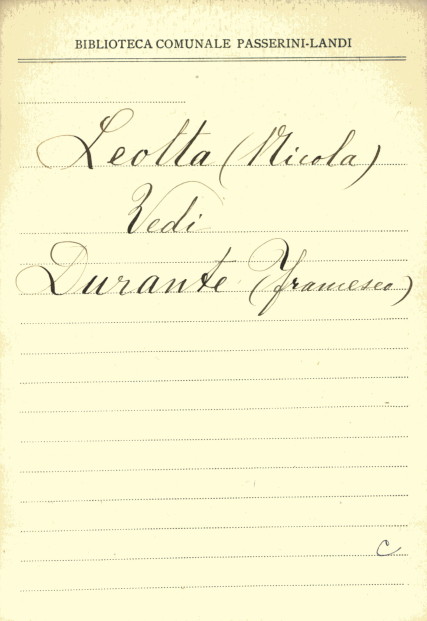 BIBLIOTECA COMUNALE PASSERINI-LANDI
Leotta (Nicola)
Vedi
Durante (Francesco)
C